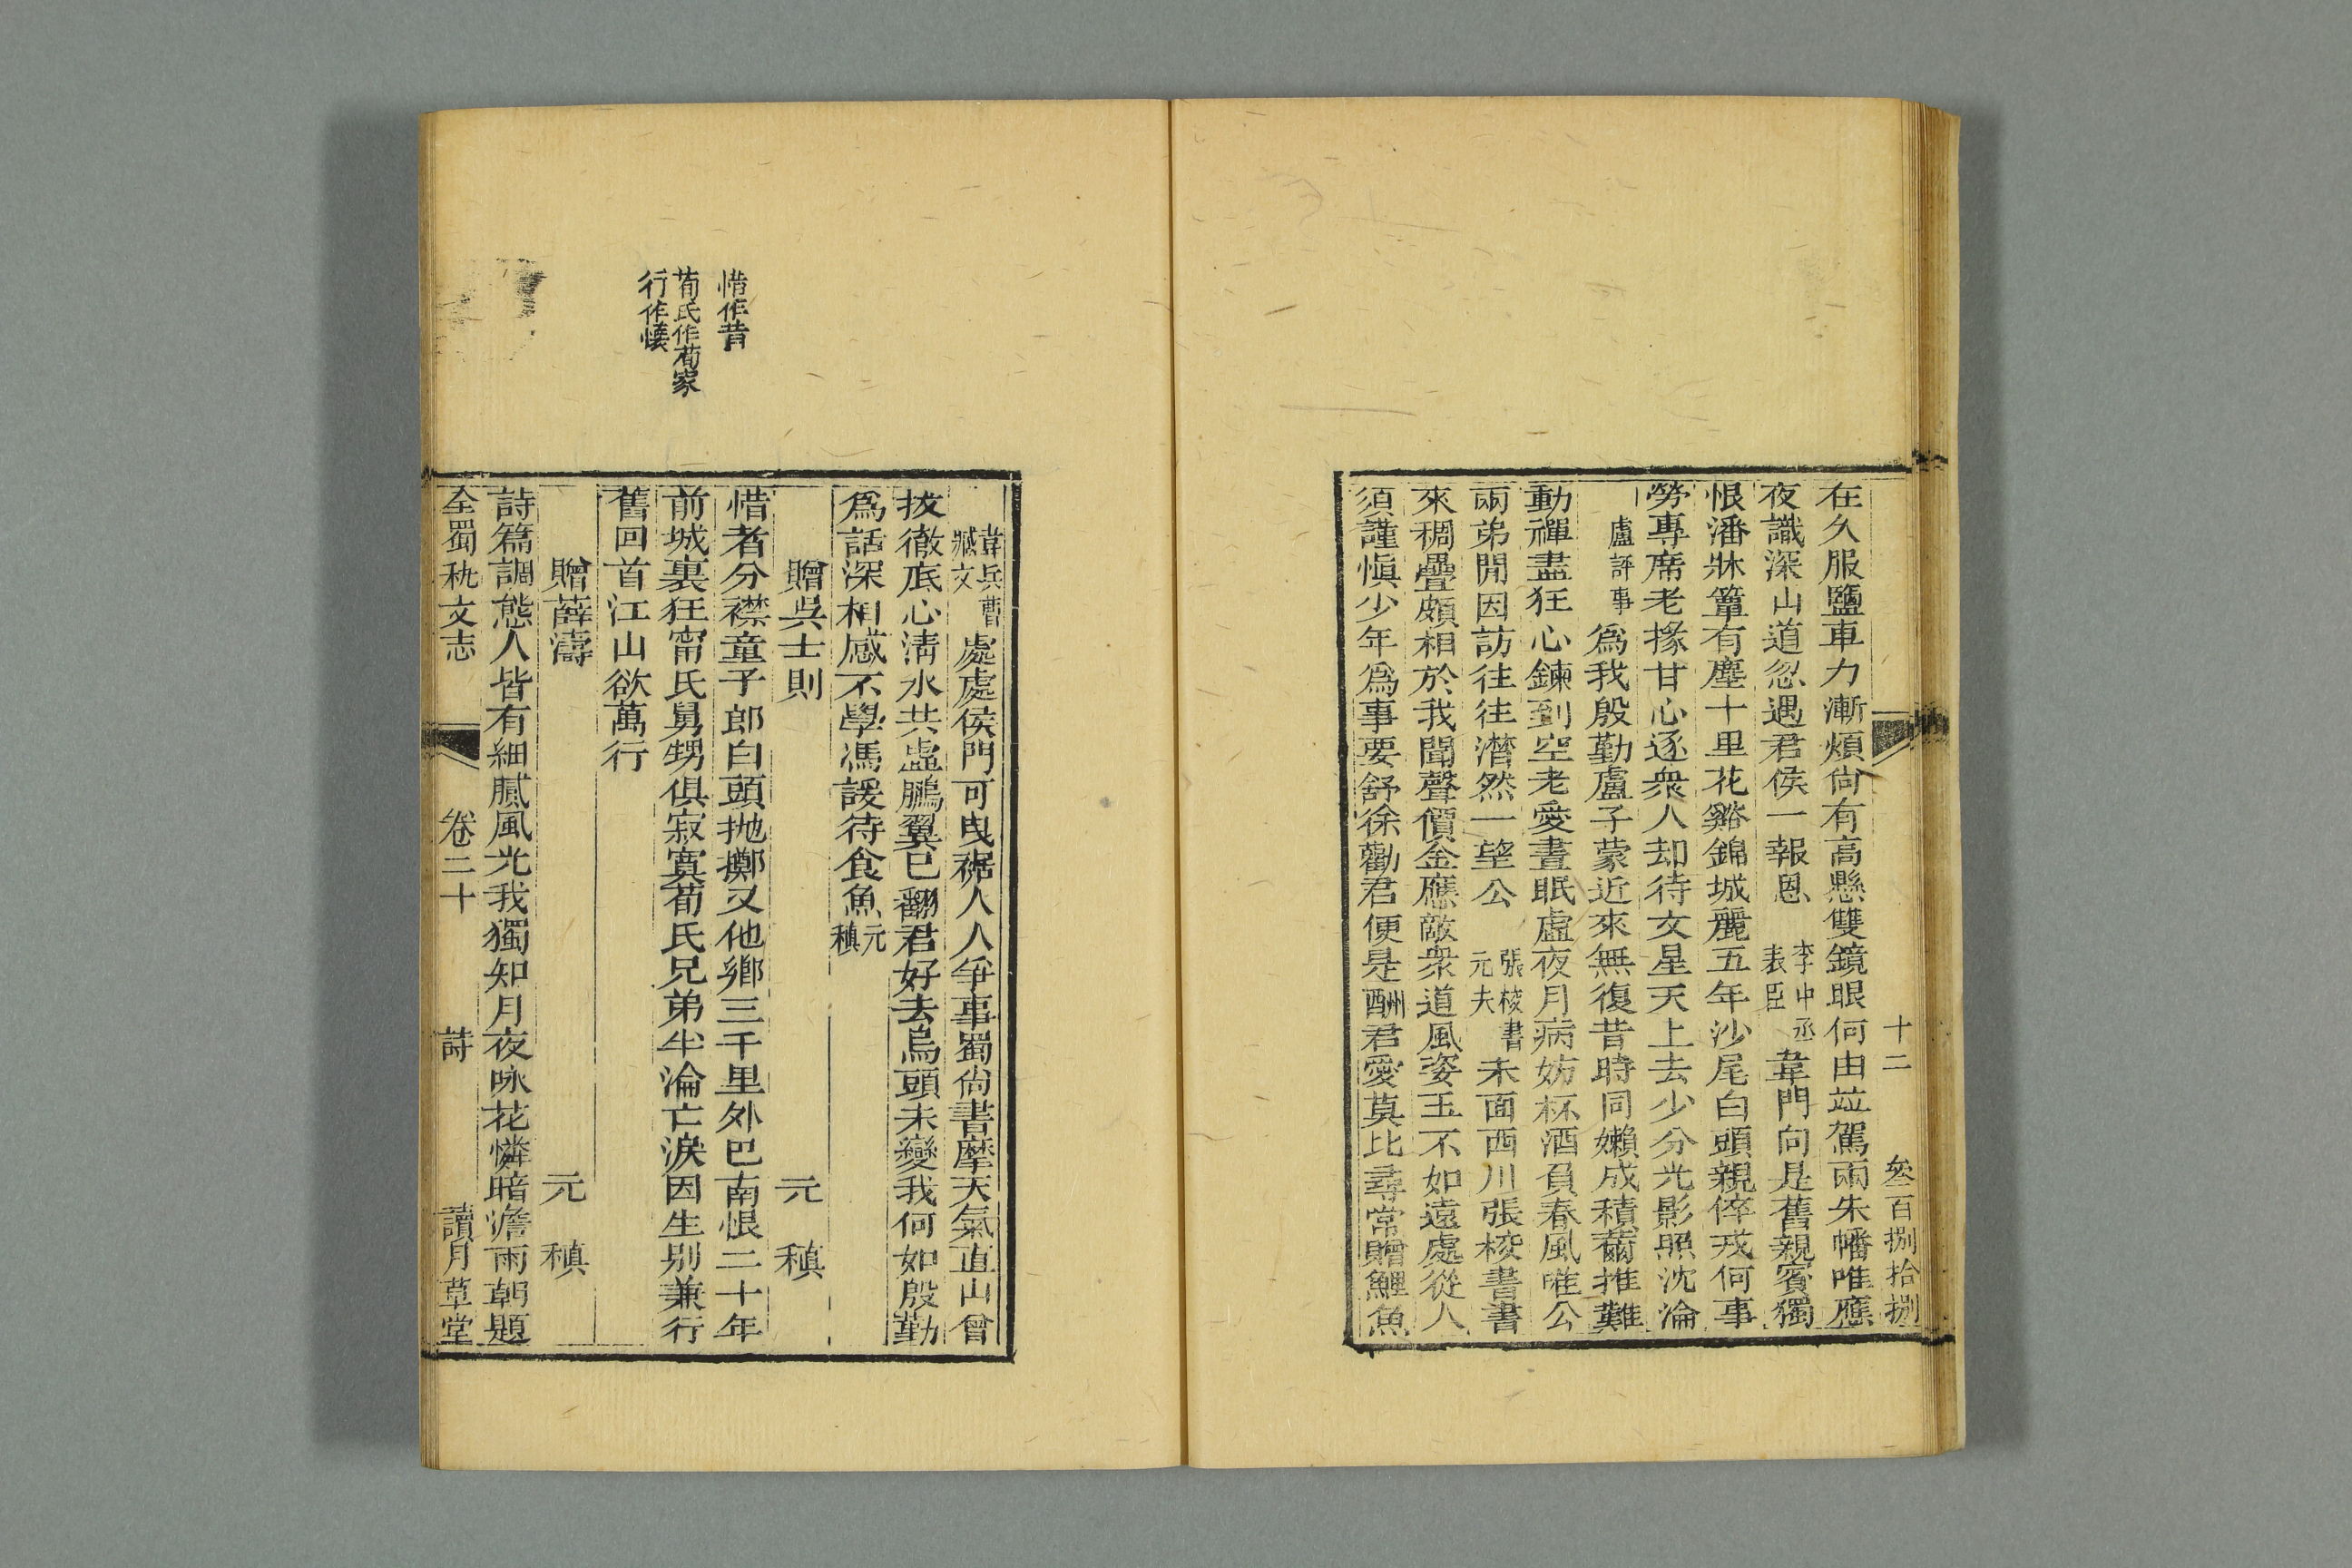 十二 叄百捌拾捌
在久服鹽車力漸煩尙有高懸雙鏡眼何由竝駕兩朱幡唯應
夜識深山道忽遇君侯一報恩 李中丞表臣 韋門向是舊親賓獨
恨潘牀簟有塵十里花谿錦城麗五年沙尾白頭新倅戎何事
勞專席老掾甘心逐衆人却待文星天上去少分光影照沈淪
盧評事 爲我殷勤盧子蒙近來無復昔時同嬾成積𤻤推難
動禪盡狂心鍊到空老愛晝眠虛夜月病妨杯酒負春風唯公
兩弟閒因訪往往濳然一望公 張校書元夫 未面西川張校書書
來稠疊頗相於我聞聲價金應敵衆道風姿玉不如遠處從人
須謹愼少年爲事要舒徐勸君便是酬君愛莫比尋常贈鯉魚
韋兵曹臧文 處處侯門可曳裾人人爭事蜀尙書摩天氣直山曾
拔徹底心淸水共虛鵬翼已翻君好去烏頭未變我何如殷勤
爲話深相感不學馮諼待食魚 元稹
贈吳士則 元稹
惜者分襟童子郎白頭抛擲又他鄉三千里外巴南恨二十年
前城裏狂甯氏舅甥俱寂寞荀氏兄弟半淪亡淚因生別兼行
舊回首江山欲萬行
贈薛濤 元稹
詩篇調態人皆有細膩風光我獨知月夜咏花憐暗澹雨朝題
全蜀秇文志 卷二十 詩 讀月草堂
惜作昔
荀氏作荀家
行作懷